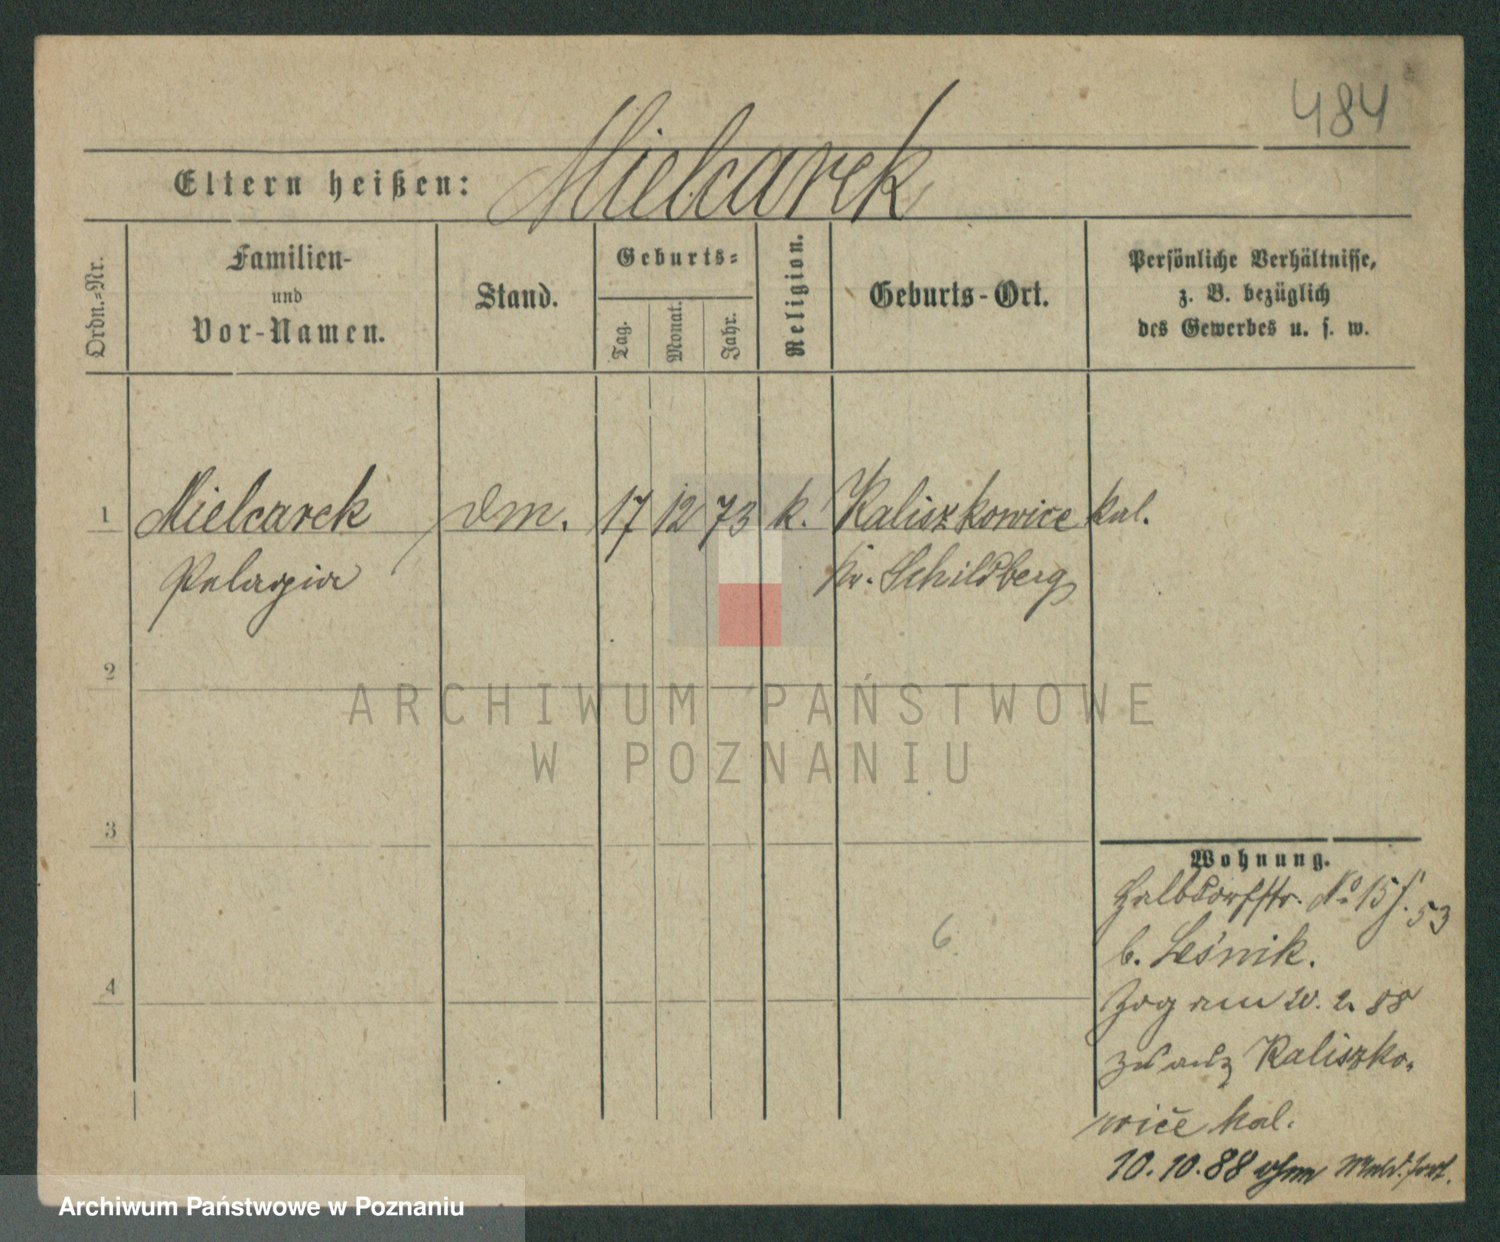 484
Eltern heißen: Mielcarek
Ordn.-Nr.
Familien-
und
Vor-Namen.
Stand.
Geburts-
Tag.
Monat.
Jahr.
Religion.
Geburts-Ort.
Persönliche Verhältnisse,
z. B. bezüglich
des Gewerbes u. s. w.
1 Mielcarek dm. 17 12 73 k. Kaliszkowice kal.
Pelagia Kr. Schildberg
2
ARCHIWUM PAŃSTWOWE
W POZNANIU
3
4
6.
Wohnung.
Halbdorfstr. No 15 53
b. Leśnik.
Zog am 20. 2. 88
zu aus Kaliszko-
wice kal.
10. 10. 88 ohne
Archiwum Państwowe w Poznaniu